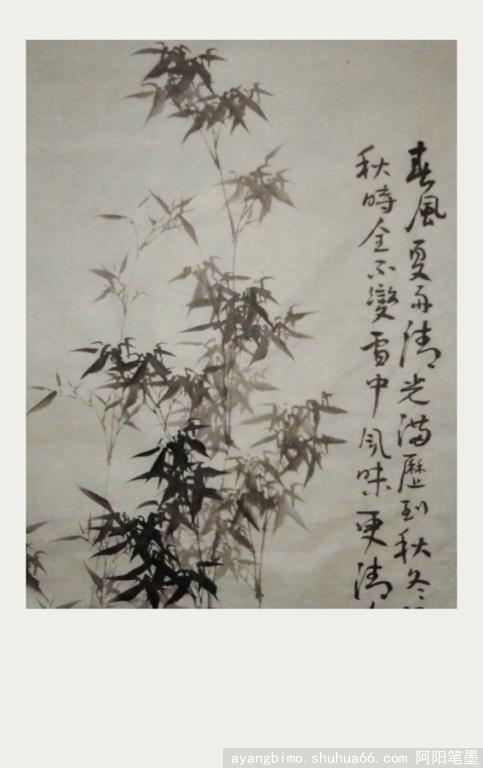 春風夏雨清光滿歷到秋冬
秋時全不變雪中风味更清
ayangbimo.shuhua66.com 阿阳笔墨